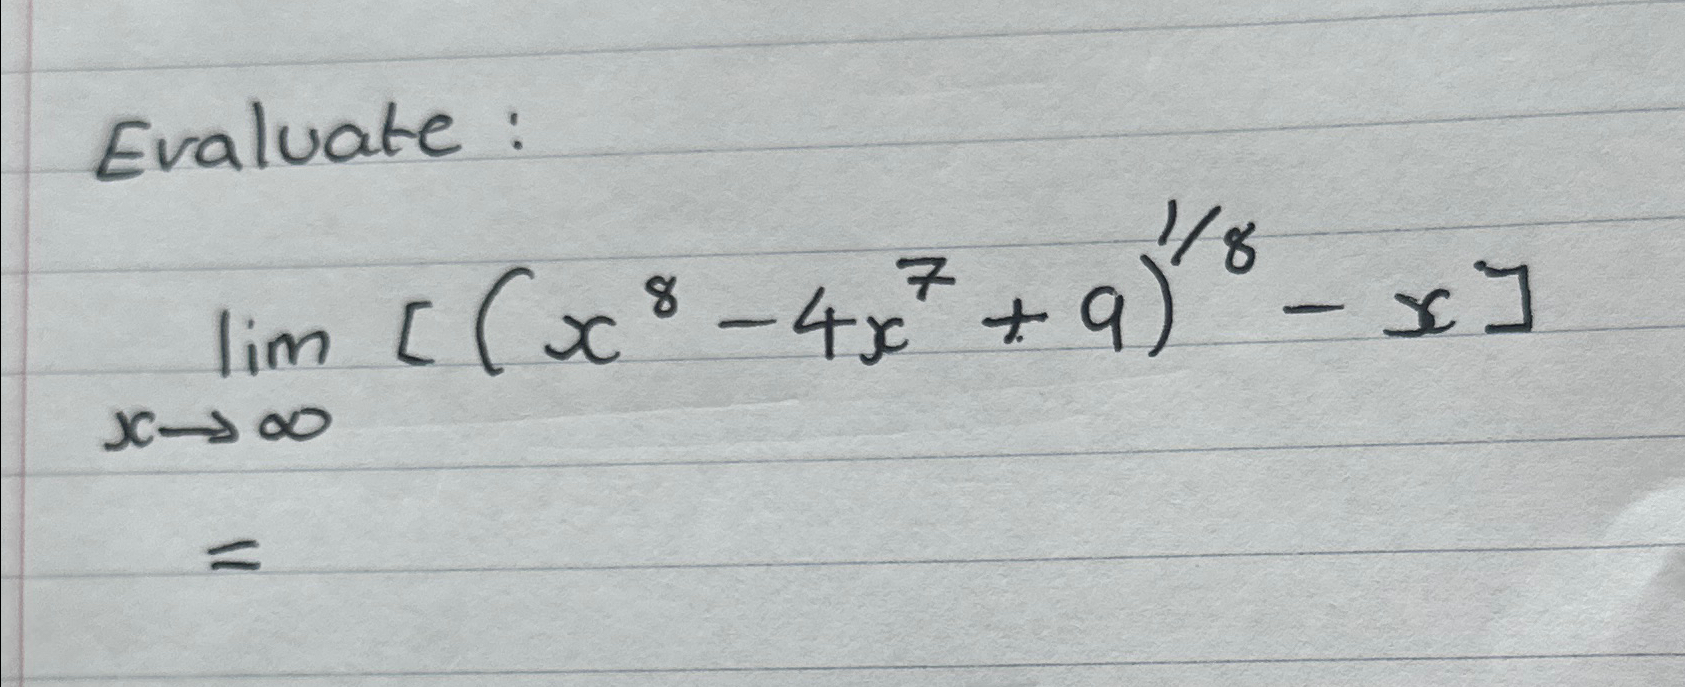 Evaluate :
lim [(x⁸ - 4x⁷ + 9)^1/8 - x]
x→∞
=